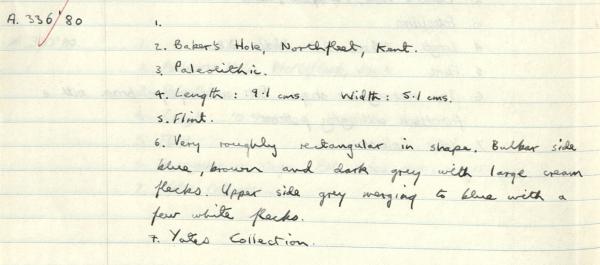 A. 336'80
1.
2. Baker's Hole, Northfleet, Kent.
3. Paleolithic.
4. Length : 9.1 cms. Width : 5.1 cms.
5. Flint.
6. Very roughly rectangular in shape. Bulber side
blue, brown and dark grey with large cream
flecks. Upper side grey merging to blue with a
few white flecks.
7. Yates Collection.